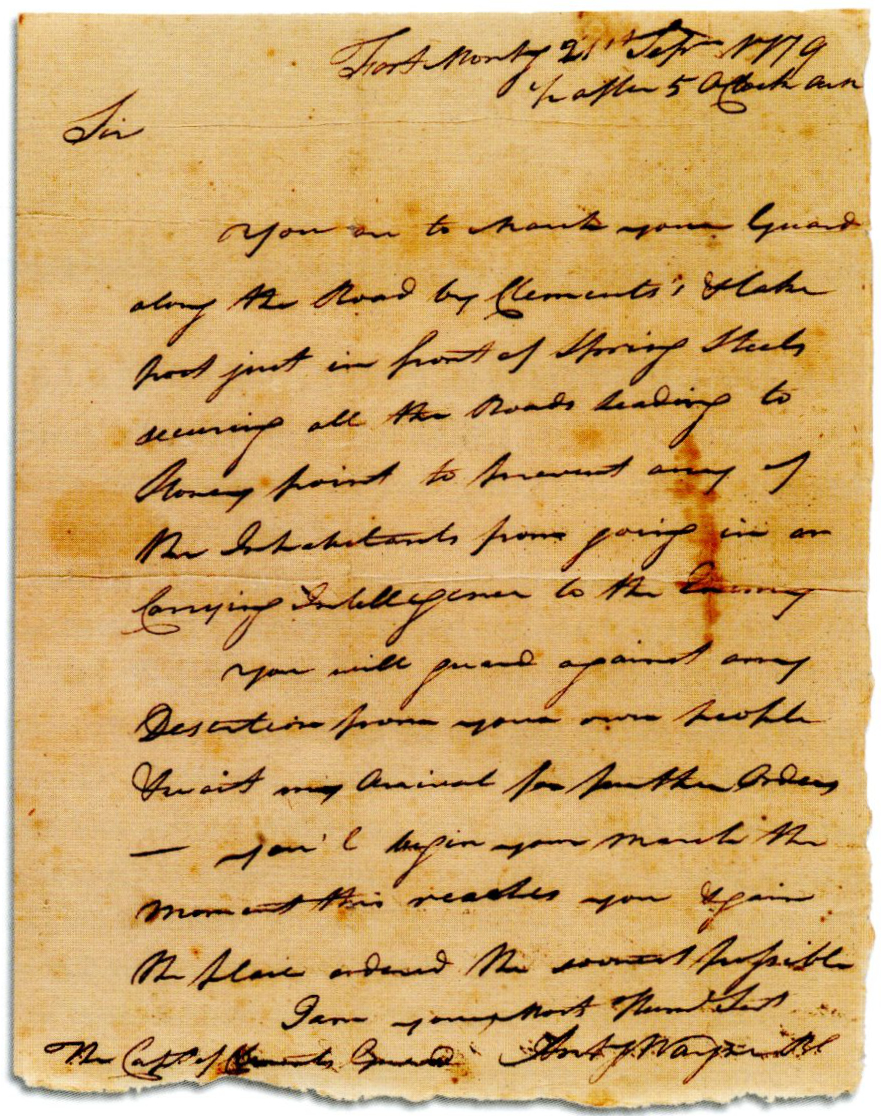 Fort Montg 21st Sepr 1779
½ after 5 OClock am
Sir
You are to March your Guard
along the Road by Clements's & take
post just in front of Spring Steels
securing all the Roads leading to
Stoney point to prevent any of
the Inhabitants from going in or
Carrying Intelligence to the Enemy
You will guard against any
Desertion from your own people
& wait my Arrival for further Orders
— you'l begin your march the
moment this reaches you & gain
the place ordered the soonest possible
I am your most Huml Sert
The Capt. of Clements Guard Anty Wayne BG